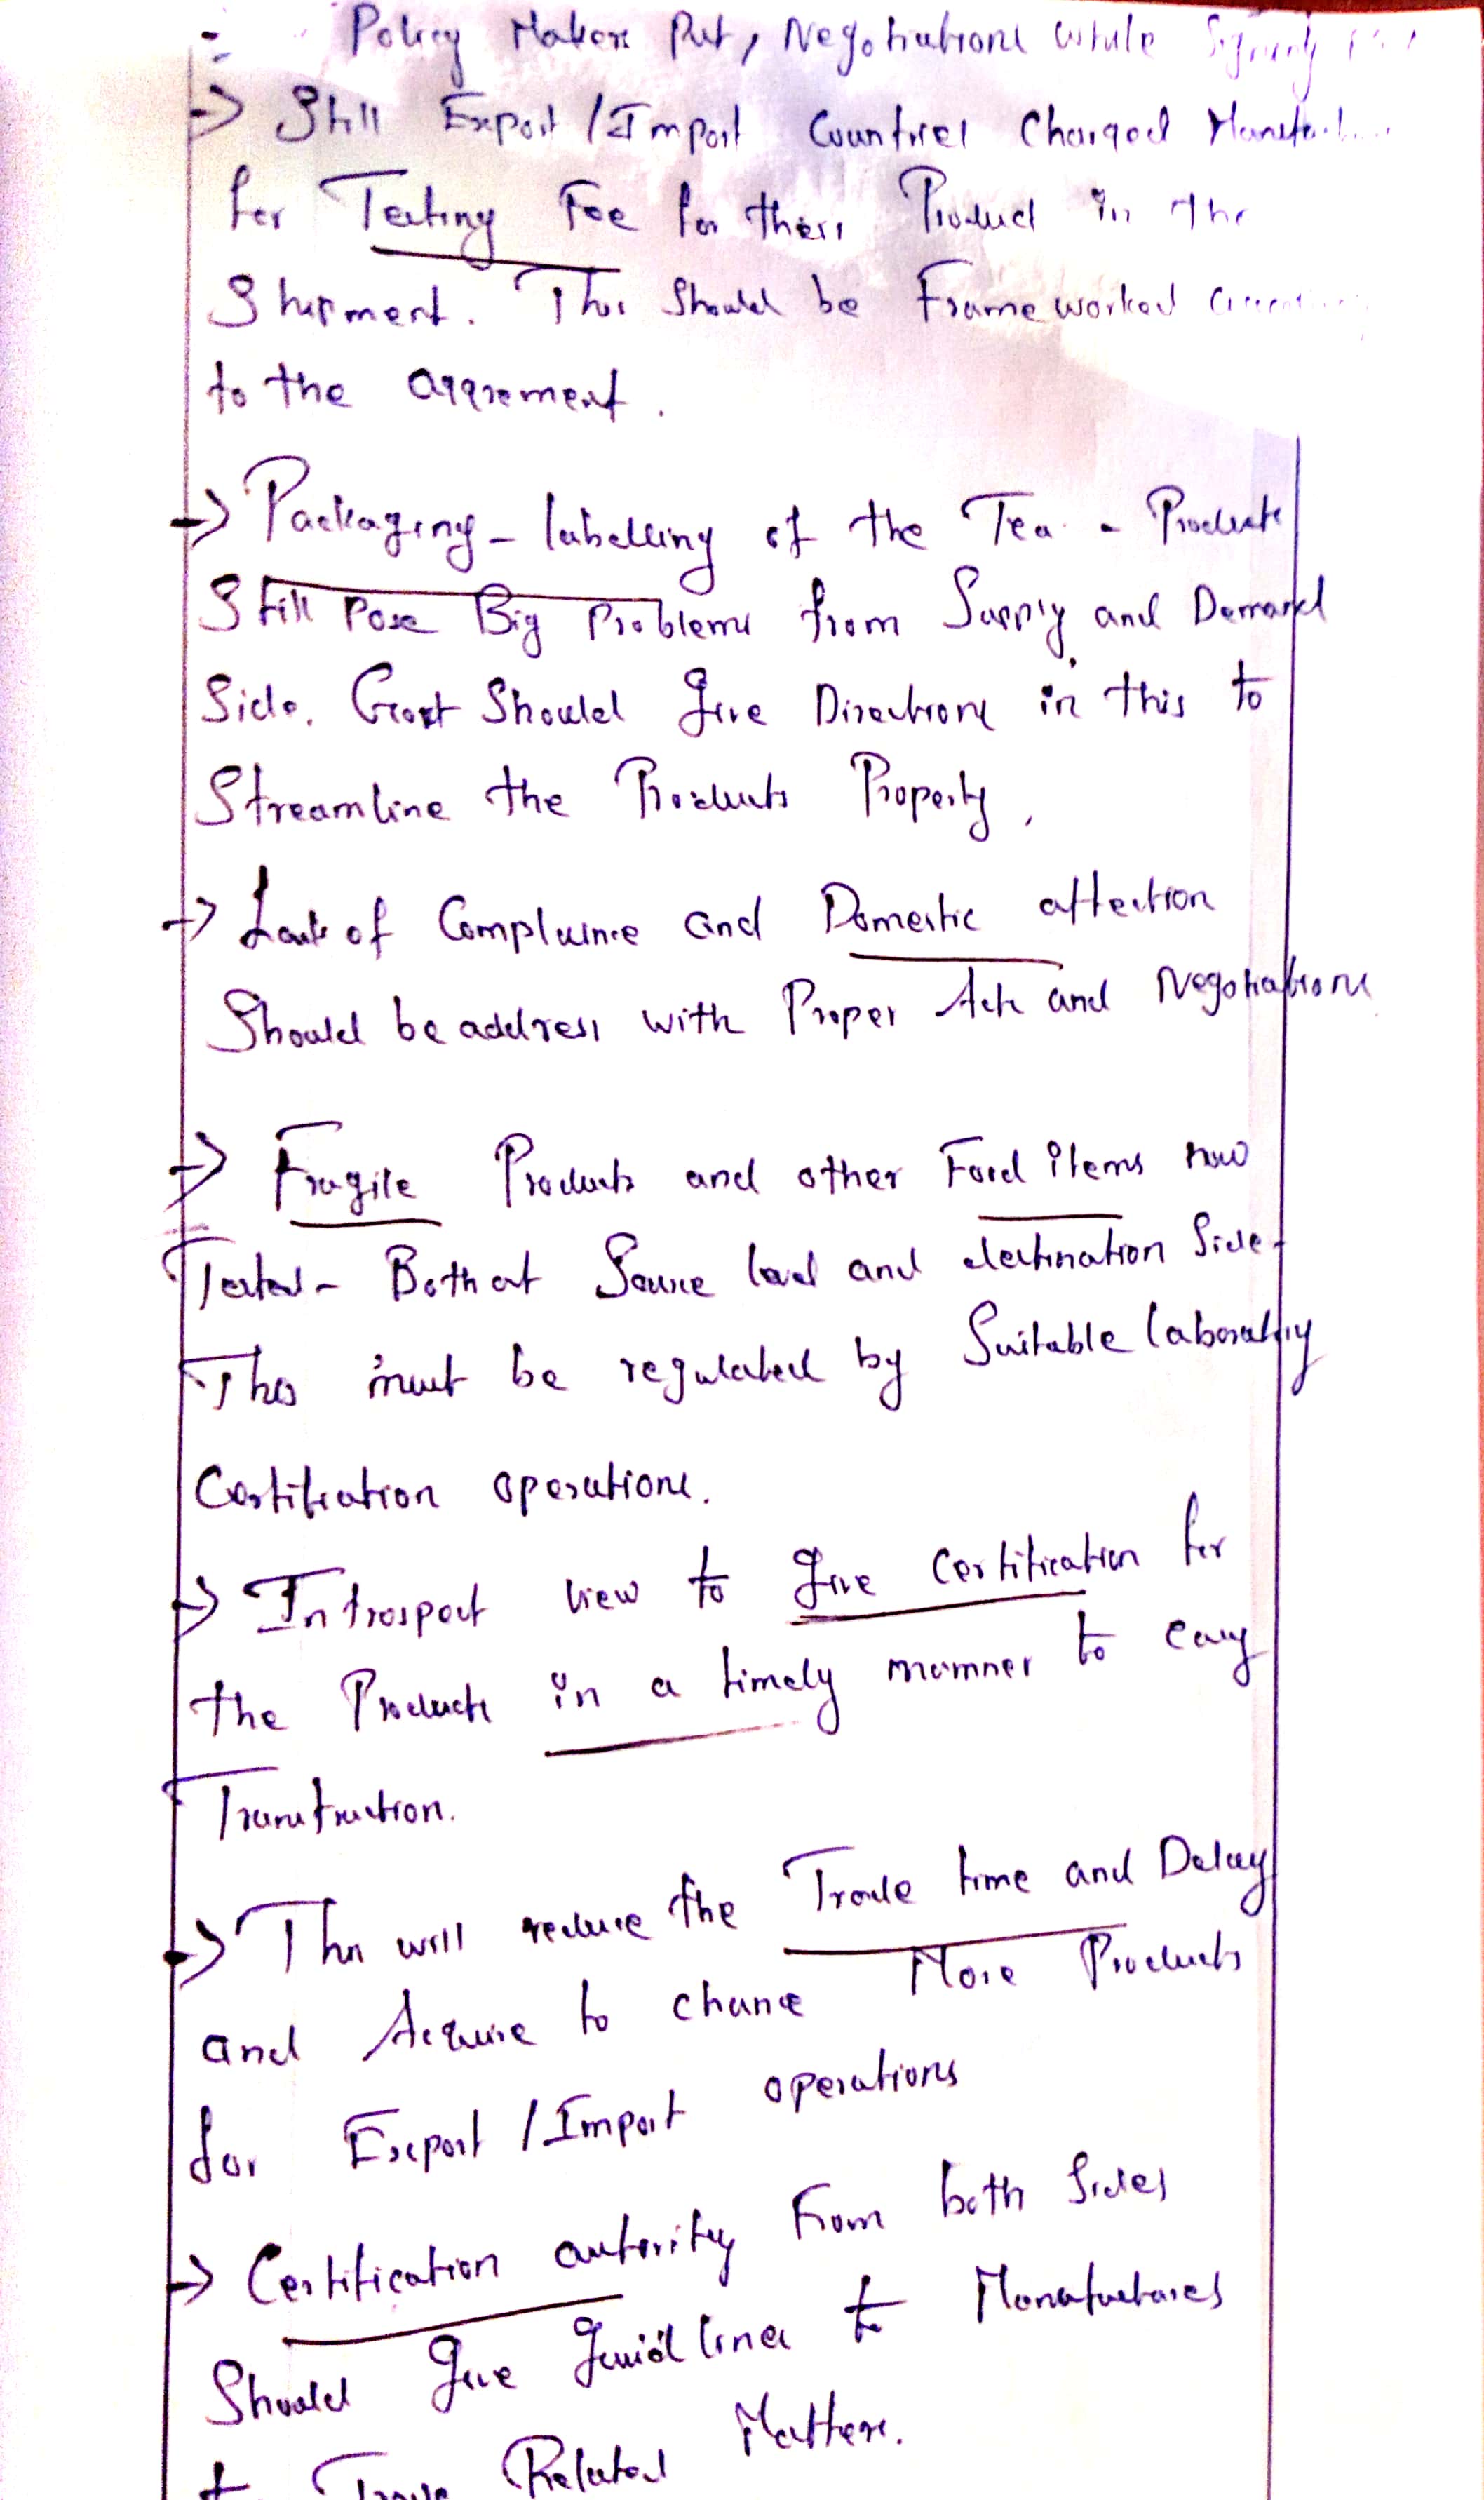 Policy Makers Put, Negotiations while Signing
→ Still Export / Import Countries Charged
for Testing Fee for their Product in the
Shipment. This Should be Frame worked
to the agreement.
→ Packaging - labelling of the Tea - Products
Still Pose Big Problems from Supply and Demand
Side. Govt Should give Directions in this to
Streamline the Products Properly,
→ Lack of Compliance and Domestic attention
Should be address with Proper Acts and Negotiations
→ Fragile Products and other Food items now
Tested - Both at Source level and destination Side.
This must be regulated by Suitable laboratory
Certification operations.
→ Introspect view to give certification for
the Products in a timely manner to easy
→ This will reduce the Trade time and Delay
and Acquire to chance More Products
for Export / Import operations
→ Certification autority From both Sides
Should give guidlines to Manufactures
to Trade Related Matters.